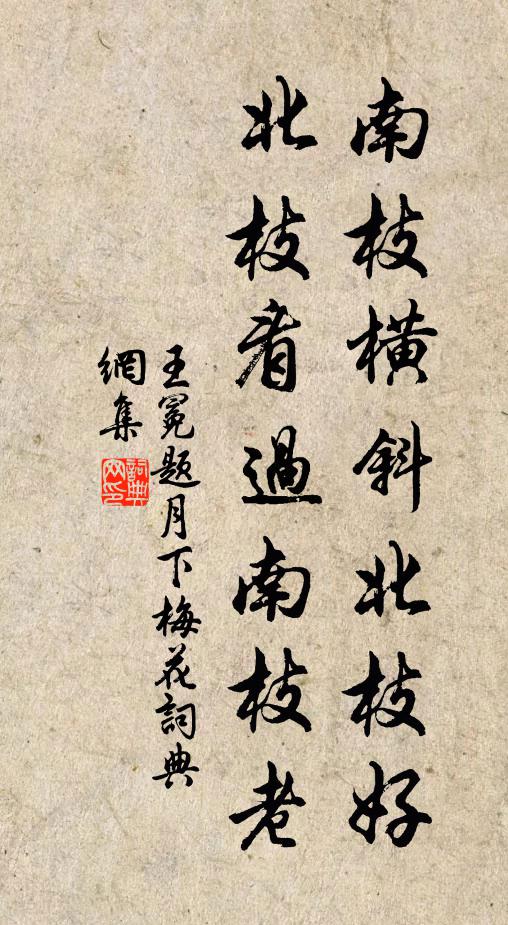 南枝橫斜北枝好
北枝看過南枝老
王冕題月下梅花詞典
網集
詞典
网印